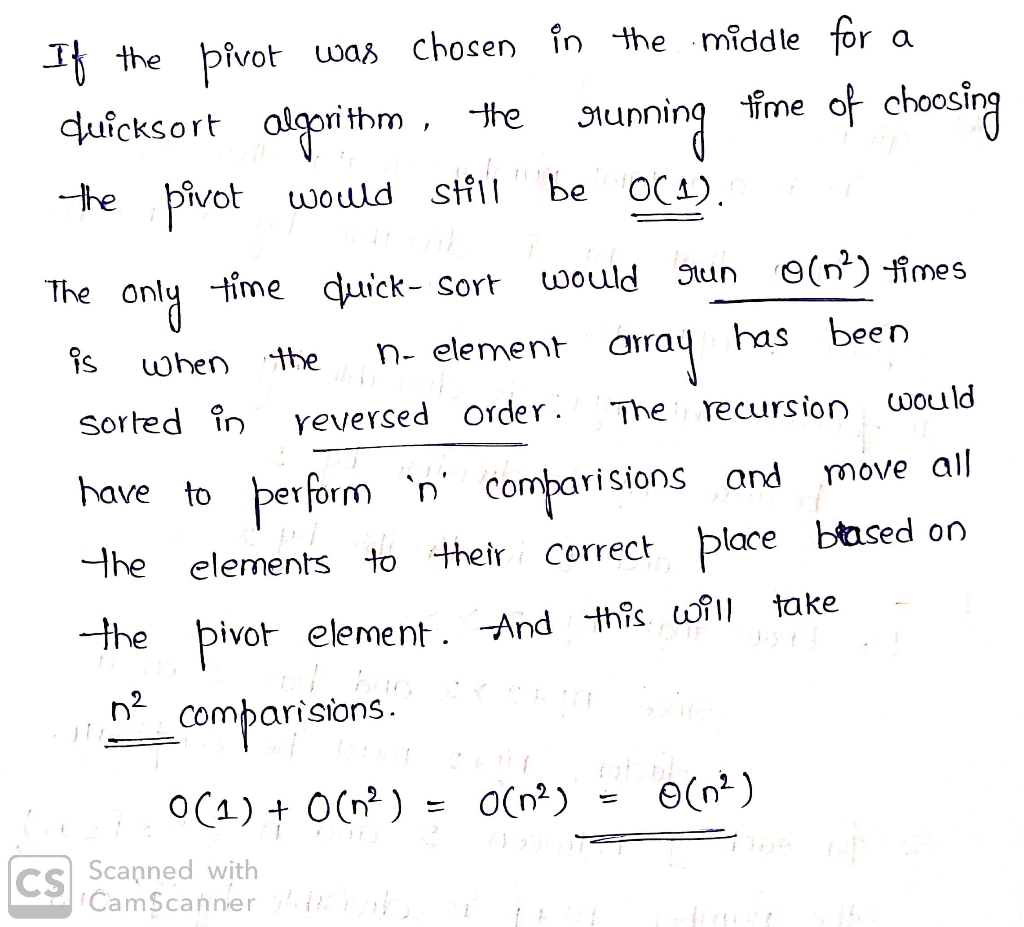 If the pivot was chosen in the middle for a
quicksort algorithm, the running time of choosing
the pivot would still be O(1).
The only time quick-sort would run Θ(n²) times
is when the n-element array has been
sorted in reversed order. The recursion would
have to perform 'n' comparisions and move all
the elements to their correct place based on
the pivot element. And this will take
n² comparisions.
O(1) + O(n²) = O(n²) = Θ(n²)
CS Scanned with
CamScanner